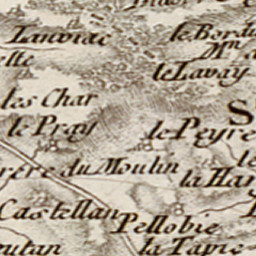 Lauriac
le Bordu
Mⁿ
elle
le Lavay
les Char
le Pray
S
le Peyre
rere du Moulin
la Har
Castellan
Pellobie
outan
la Tapie